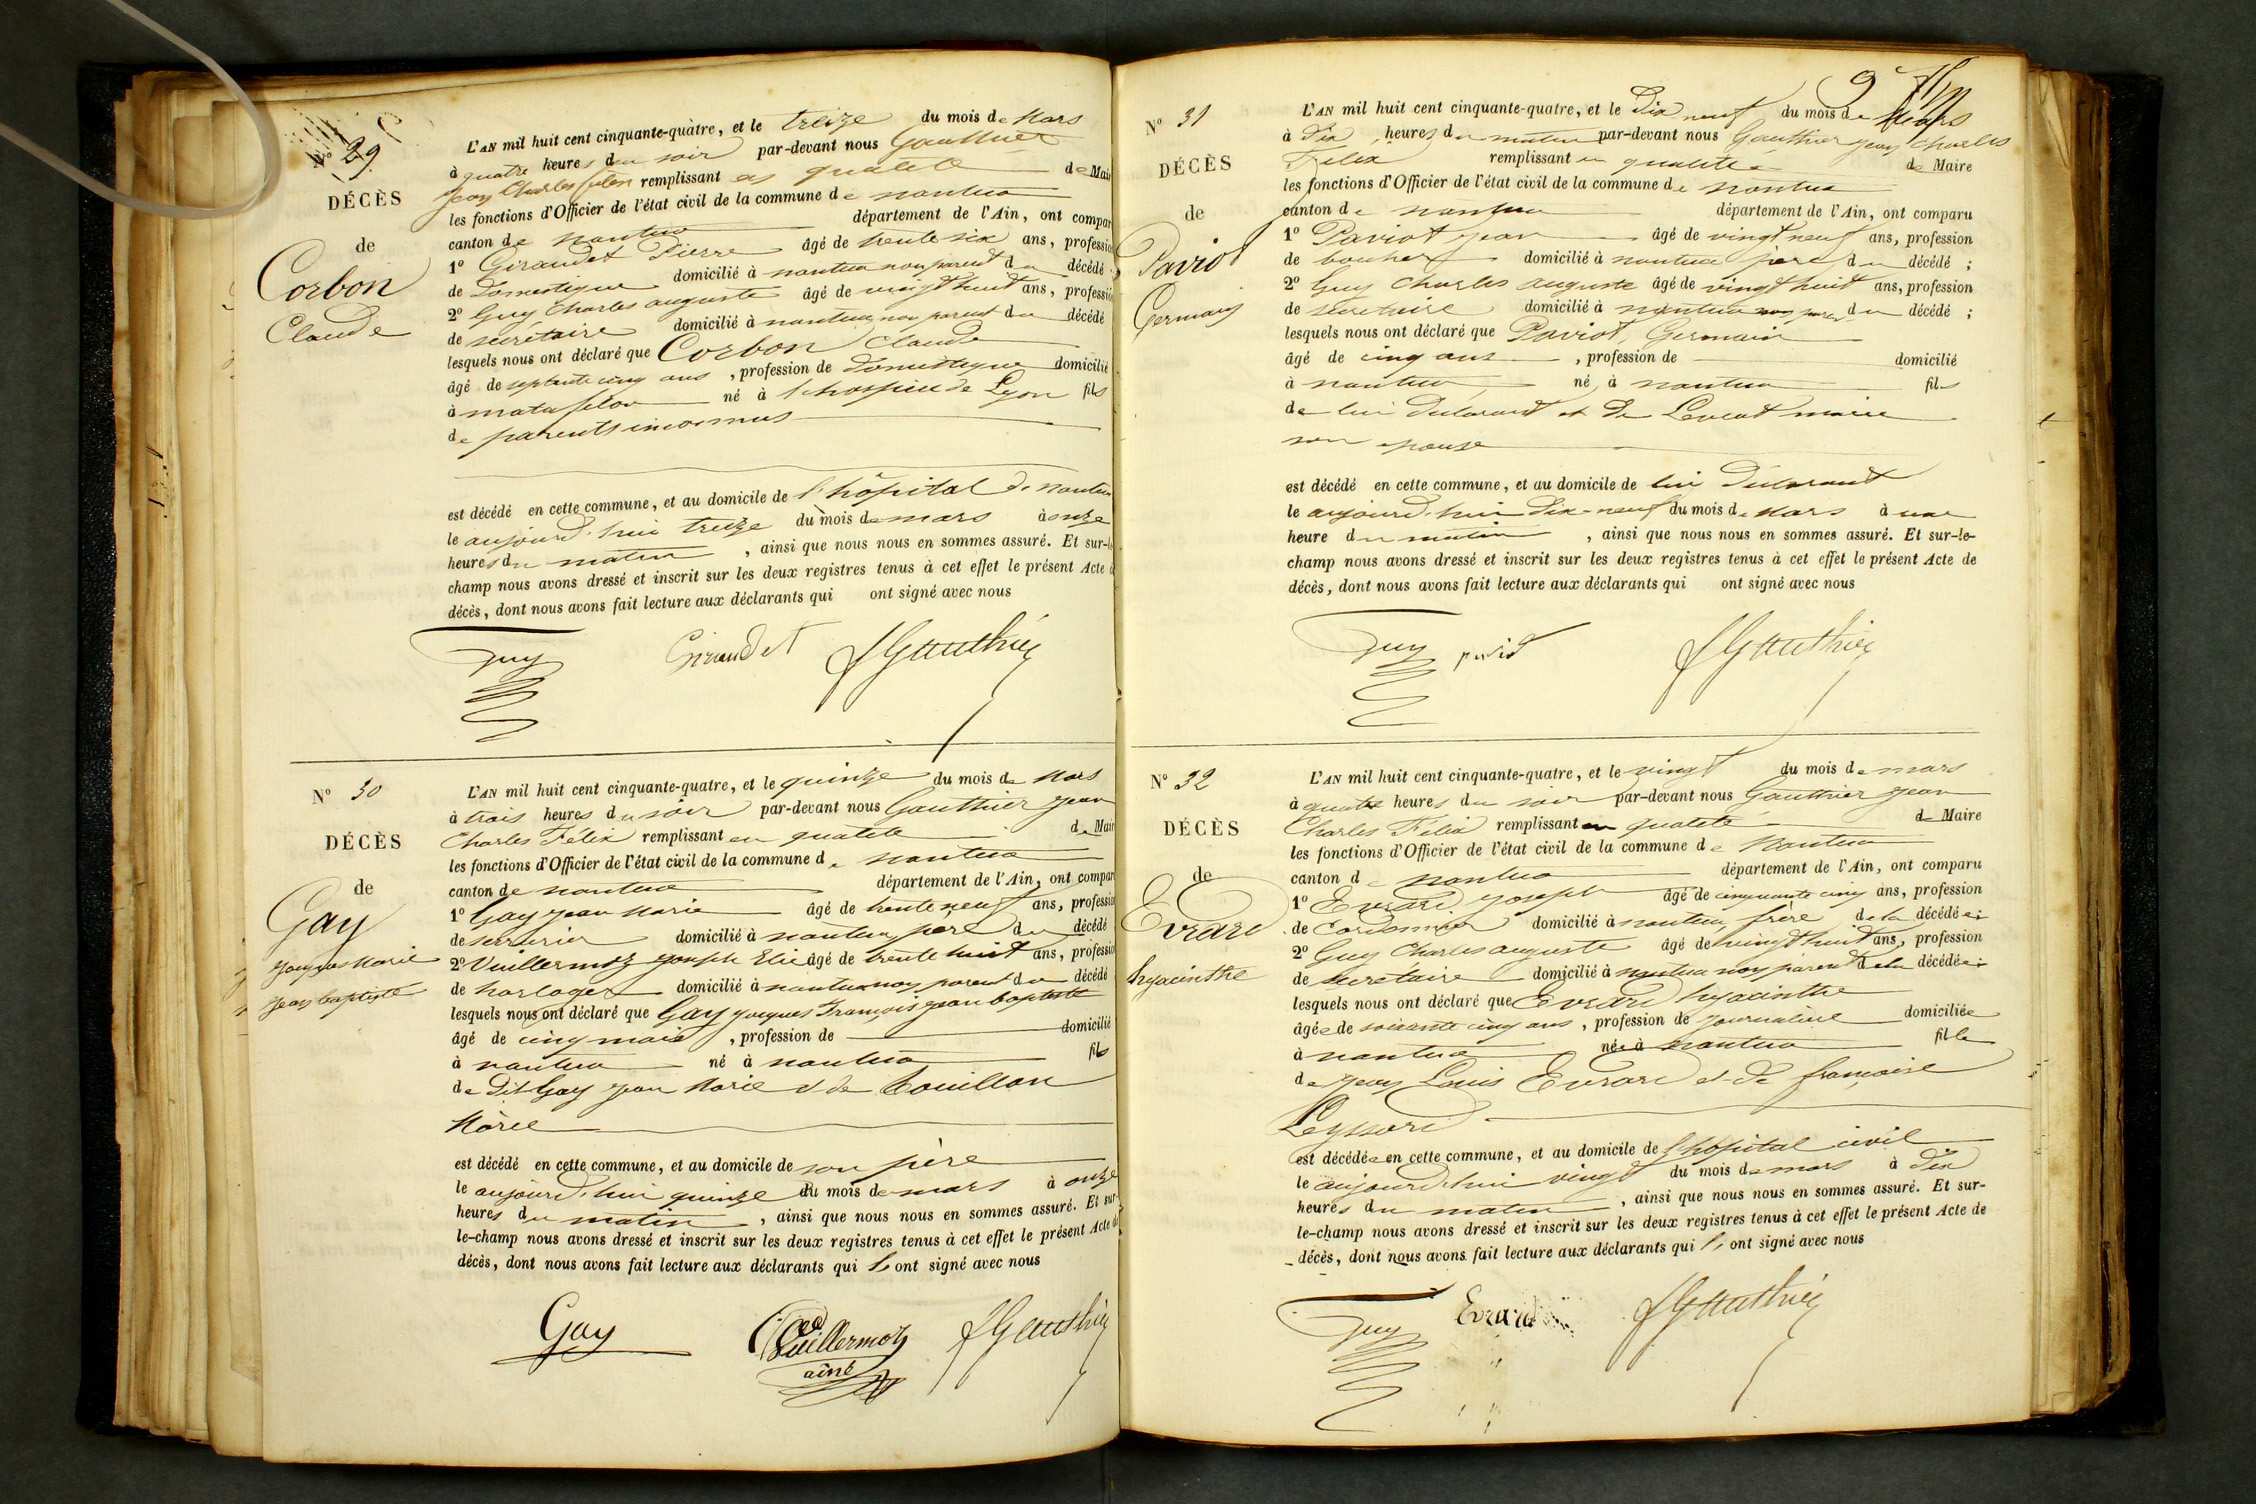 N° 29
DÉCÈS
de
Corbon
Claude
L'AN mil huit cent cinquante-quatre, et le treize du mois de Mars
à quatre heures du soir par-devant nous Gauthier
Jean Charles félix remplissant en qualité de Mair
les fonctions d'Officier de l'état civil de la commune de nantua
canton de nantua département de l'Ain, ont compar
1° Giraudet Pierre âgé de trente six ans, professio
de Domestique domicilié à nantua non parent du décédé
2° Guy Charles auguste âgé de vingt huit ans, professio
de secrétaire domicilié à nantua non parent du décédé
lesquels nous ont déclaré que Corbon Claude
âgé de septante cinq ans, profession de Domestique domicilié
à matafelon né à l'hospice de Lyon fils
de parents inconnus
est décédé en cette commune, et au domicile de l'hôpital de nantua
le aujourd'hui treize du mois de mars à onze
heures du matin, ainsi que nous nous en sommes assuré. Et sur-le
champ nous avons dressé et inscrit sur les deux registres tenus à cet effet le présent Acte d
décès, dont nous avons fait lecture aux déclarants qui ont signé avec nous
Guy Giraudet JGauthier
N° 30
DÉCÈS
de
Gay
Jean baptiste
L'AN mil huit cent cinquante-quatre, et le quinze du mois de Mars
à trois heures du soir par-devant nous Gauthier Jean
Charles Félix remplissant en qualité de Mair
les fonctions d'Officier de l'état civil de la commune de nantua
canton de nantua département de l'Ain, ont compar
1° Gay Jean Marie âgé de trente neuf ans, professio
de serrurier domicilié à nantua père du décédé
2° Vuillermoz Joseph Elie âgé de trente huit ans, professio
de horloger domicilié à nantua non parent du décédé
lesquels nous ont déclaré que Gay Jacques François Jean baptiste
âgé de cinq mois, profession de domicilié
à nantua né à nantua fils
de Dit Gay Jean Marie & de Bouillon
Marie
est décédé en cette commune, et au domicile de son père
le aujourd'hui quinze du mois de mars à onze
heures du matin, ainsi que nous nous en sommes assuré. Et sur-
le-champ nous avons dressé et inscrit sur les deux registres tenus à cet effet le présent Acte de
décès, dont nous avons fait lecture aux déclarants qui ont signé avec nous
Gay Vuillermoz JGauthier
aîné
9
N° 31
DÉCÈS
de
Paviot
Germain
L'AN mil huit cent cinquante-quatre, et le Dix neuf du mois de Mars
à Dix heures du matin par-devant nous Gauthier Jean Charles
Félix remplissant en qualité de Maire
les fonctions d'Officier de l'état civil de la commune de nantua
canton de nantua département de l'Ain, ont comparu
1° Paviot Jean âgé de vingt neuf ans, profession
de boucher domicilié à nantua père du décédé ;
2° Guy Charles auguste âgé de vingt huit ans, profession
de secrétaire domicilié à nantua non parent du décédé ;
lesquels nous ont déclaré que Paviot, Germain
âgé de cinq ans, profession de domicilié
à nantua né à nantua fils
de lui Déclarant et de marie
son épouse
est décédé en cette commune, et au domicile de lui Déclarant
le aujourd'hui Dix-neuf du mois de Mars à une
heure du matin, ainsi que nous nous en sommes assuré. Et sur-le-
champ nous avons dressé et inscrit sur les deux registres tenus à cet effet le présent Acte de
décès, dont nous avons fait lecture aux déclarants qui ont signé avec nous
Guy JGauthier
N° 32
DÉCÈS
de
Evrard
hyacinthe
L'AN mil huit cent cinquante-quatre, et le vingt du mois de mars
à quatre heures du soir par-devant nous Gauthier Jean
Charles Félix remplissant en qualité de Maire
les fonctions d'Officier de l'état civil de la commune de Nantua
canton de nantua département de l'Ain, ont comparu
1° Evrard Joseph âgé de cinquante cinq ans, profession
de Cordonnier domicilié à nantua, frère de la décédée ;
2° Guy Charles auguste âgé de vingt huit ans, profession
de secrétaire domicilié à nantua non parent de la décédée ;
lesquels nous ont déclaré que Evrard hyacinthe
âgée de soixante cinq ans, profession de journalière domiciliée
à nantua née à nantua fille
de Jean Louis Evrard et de françoise
Leyssard
est décédée en cette commune, et au domicile de l'hôpital civil
le aujourd'hui vingt du mois de mars à dix
heures du matin, ainsi que nous nous en sommes assuré. Et sur-
le-champ nous avons dressé et inscrit sur les deux registres tenus à cet effet le présent Acte de
décès, dont nous avons fait lecture aux déclarants qui ont signé avec nous
Guy Evrard JGauthier